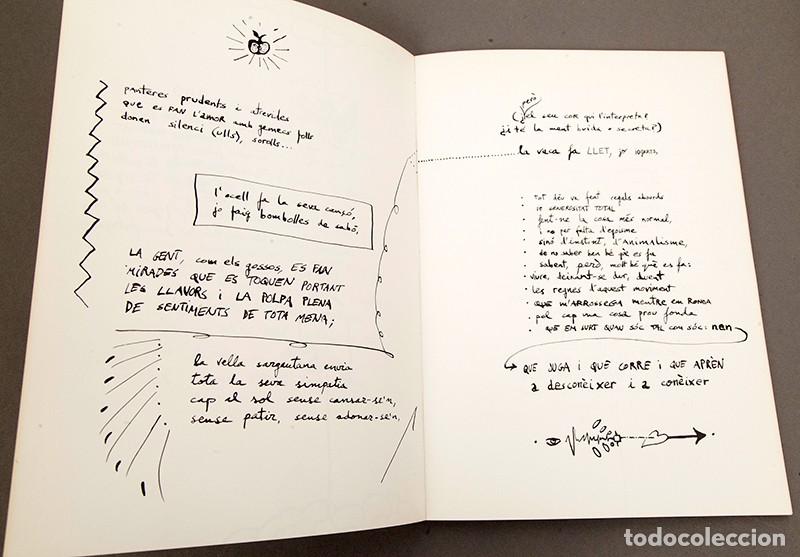 panteres prudents i atrevides
que es FAN L'AMOR amb gemecs folls
donen silenci (ulls), sorolls...
l'ocell fa la seva cançó,
jo faig bombolles de sabó,
LA GENT, com els gossos, ES FAN
MIRADES QUE ES TOQUEN PORTANT
LES LLAVORS i LA POLPA PLENA
DE SENTIMENTS DE TOTA MENA;
la vella sargantana envia
tota la seva simpatia
cap al sol sense cansar-se'n,
sense patir, sense adonar-se'n.
però
(del seu cor qui l'interpreta?
¿i té la ment buida o secreta?)
la vaca fa LLET, jo
· tot déu va fent regals absurds
· DE GENEROSITAT TOTAL
· fent-ne la cosa més normal,
· i no per falta d'egoisme
sinó d'instint, d'ANIMALISME,
· de no saber ben bé què es fa
· sabent, però, molt bé què es fa:
· viure, deixant-se dur, duent
· les regnes d'aquest moviment
· QUE M'ARROSSEGA mentre em RONCA
· pel cap una cosa prou fonda
· QUE EM SURT QUAN SÓC TAL COM SÓC: nen
QUE JUGA i QUE CORRE i QUE APRÈN
a desconèixer i a conèixer
todocoleccion